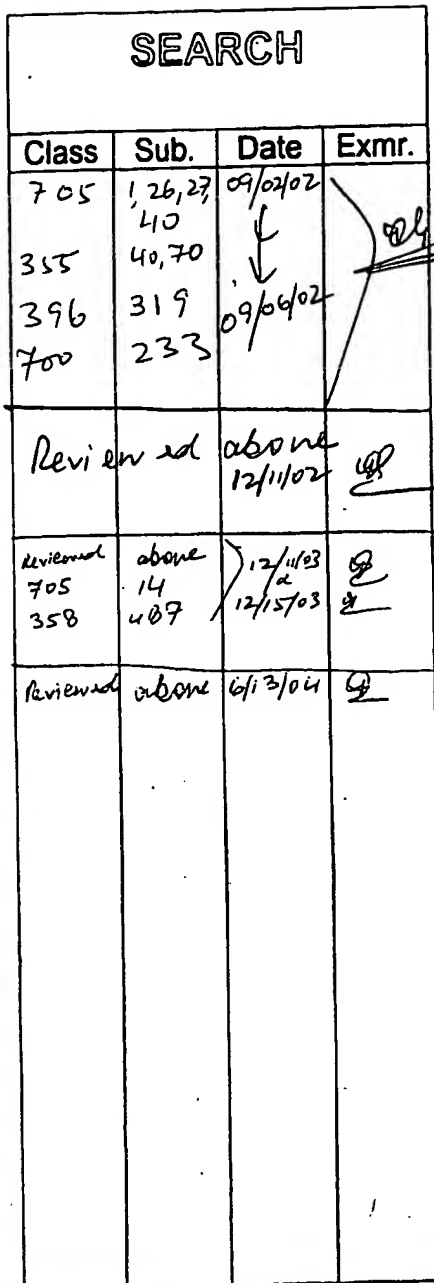 SEARCH
Class Sub. Date Exmr.
705 1, 26, 27, 09/02/02
40
355 40, 70
396 319 09/06/02
700 233
Reviewed above
12/11/02
Reviewed above 12/11/03
705 14 &
358 487 12/15/03
Reviewed above 6/13/04